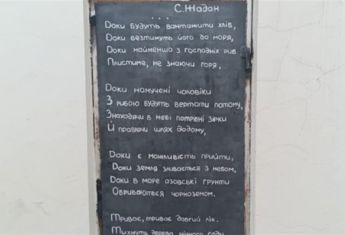 С. Жадан
...
Доки будуть вантажити хліб,
Доки везтимуть його до моря,
Доки найменша з господніх риб
Плистиме, не знаючи горя,
Доки намучені чоловіки
З рибою будуть вертати потому,
Знаходячи в небі потрібні зірки
Й правлячи шлях додому,
Доки є можливість прийти,
Доки земля зливається з небом,
Доки в море азовські ґрунти
Обриваються чорноземом.
Триває, триває довгий лік.
дерева